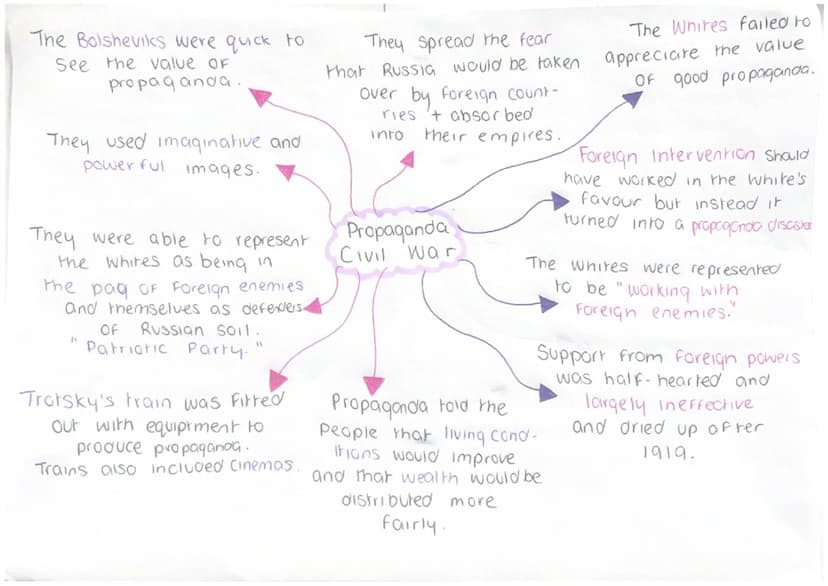 The Bolsheviks were quick to
see the value of
propaganda.
They spread the fear
that Russia would be taken
over by foreign count-
ries + absorbed
into their empires.
The Whites failed to
appreciate the value
of good propaganda.
They used imaginative and
powerful images.
Foreign Intervention should
have worked in the White's
favour but instead it
turned into a propaganda disaster
Propaganda
Civil War
They were able to represent
the whites as being in
the paq of foreign enemies
and themselves as defenders
of Russian soil.
"Patriotic Party."
The whites were represented
to be "working with
foreign enemies."
Support from foreign powers
was half-hearted and
largely ineffective
and dried up after
1919.
Trotsky's train was fitted
out with equiptment to
produce propaganda.
Trains also included cinemas.
Propaganda told the
people that living cond-
itions would improve
and that wealth would be
distributed more
fairly.